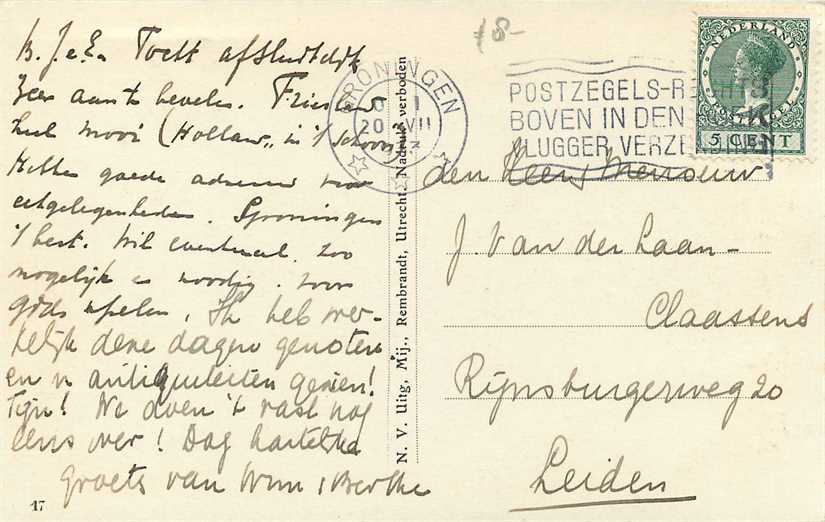 B. J. e. E. Tocht afsluitdijk
zeer aan te bevelen. Friesland
heel mooi (Holland „in 't schoon")
Hebben goede adressen voor
eetgelegenheden. Groningen
't best. Wil eventueel. zoo
mogelijk en noodig. voor
gids spelen. Ik heb wer-
kelijk deze dagen genoten
en antiquiteiten gezien!
fijn! We doen 't vast nog
eens over! Dag hartelijke
groets van Wim, Berthe
17
N. V. Uitg. Mij., Rembrandt, Utrecht. Nadruk verboden
8-
GRONINGEN
20 VII
POSTZEGELS-RECHTS
BOVEN IN DEN HOEK
VLUGGER VERZENDING
NEDERLAND
POSTZEGEL
5 CENT
den Heer, Mevrouw
J van der Laan-
Claassens
Rijnsburgerweg 20
Leiden